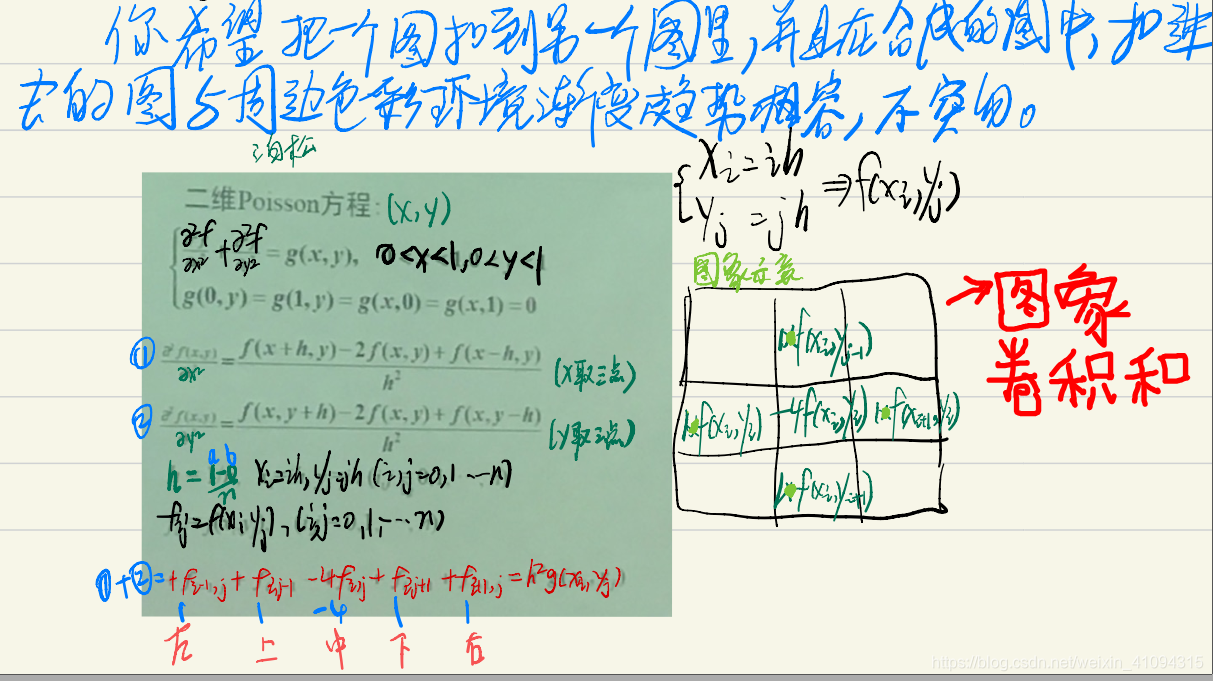 你希望把一个图扣到另一个图里,并且在合成的图中,扣进
去的图与周边色彩环境连续度趋势相容,不突兀。
泊松
二维Poisson方程: (x,y)
∂²f/∂x² + ∂²f/∂y² = g(x,y), 0<x<1,0<y<1
g(0,y)=g(1,y)=g(x,0)=g(x,1)=0
① ∂²f(x,y)/∂x² = f(x+h,y)−2f(x,y)+f(x−h,y) / h² (x取三点)
② ∂²f(x,y)/∂y² = f(x,y+h)−2f(x,y)+f(x,y−h) / h² (y取三点)
a b
h = 1-0/n xi=ih, yj=jh (i,j=0,1…n)
fij=f(xi,yj), (i,j=0,1,…n)
①+②=+fi-1,j + fi,j-1 -4fi,j + fi,j+1 + fi+1,j = h²g(xi,yj)
1 1 -4 1 1
左 上 中 下 右
xi=ih
yj=jh
⇒f(xi,yj)
图象示意
1×f(xi,yj-1)
-4f(xi,yj)
1×f(xi,yj+1)
→图象
卷积和
https://blog.csdn.net/weixin_41094315